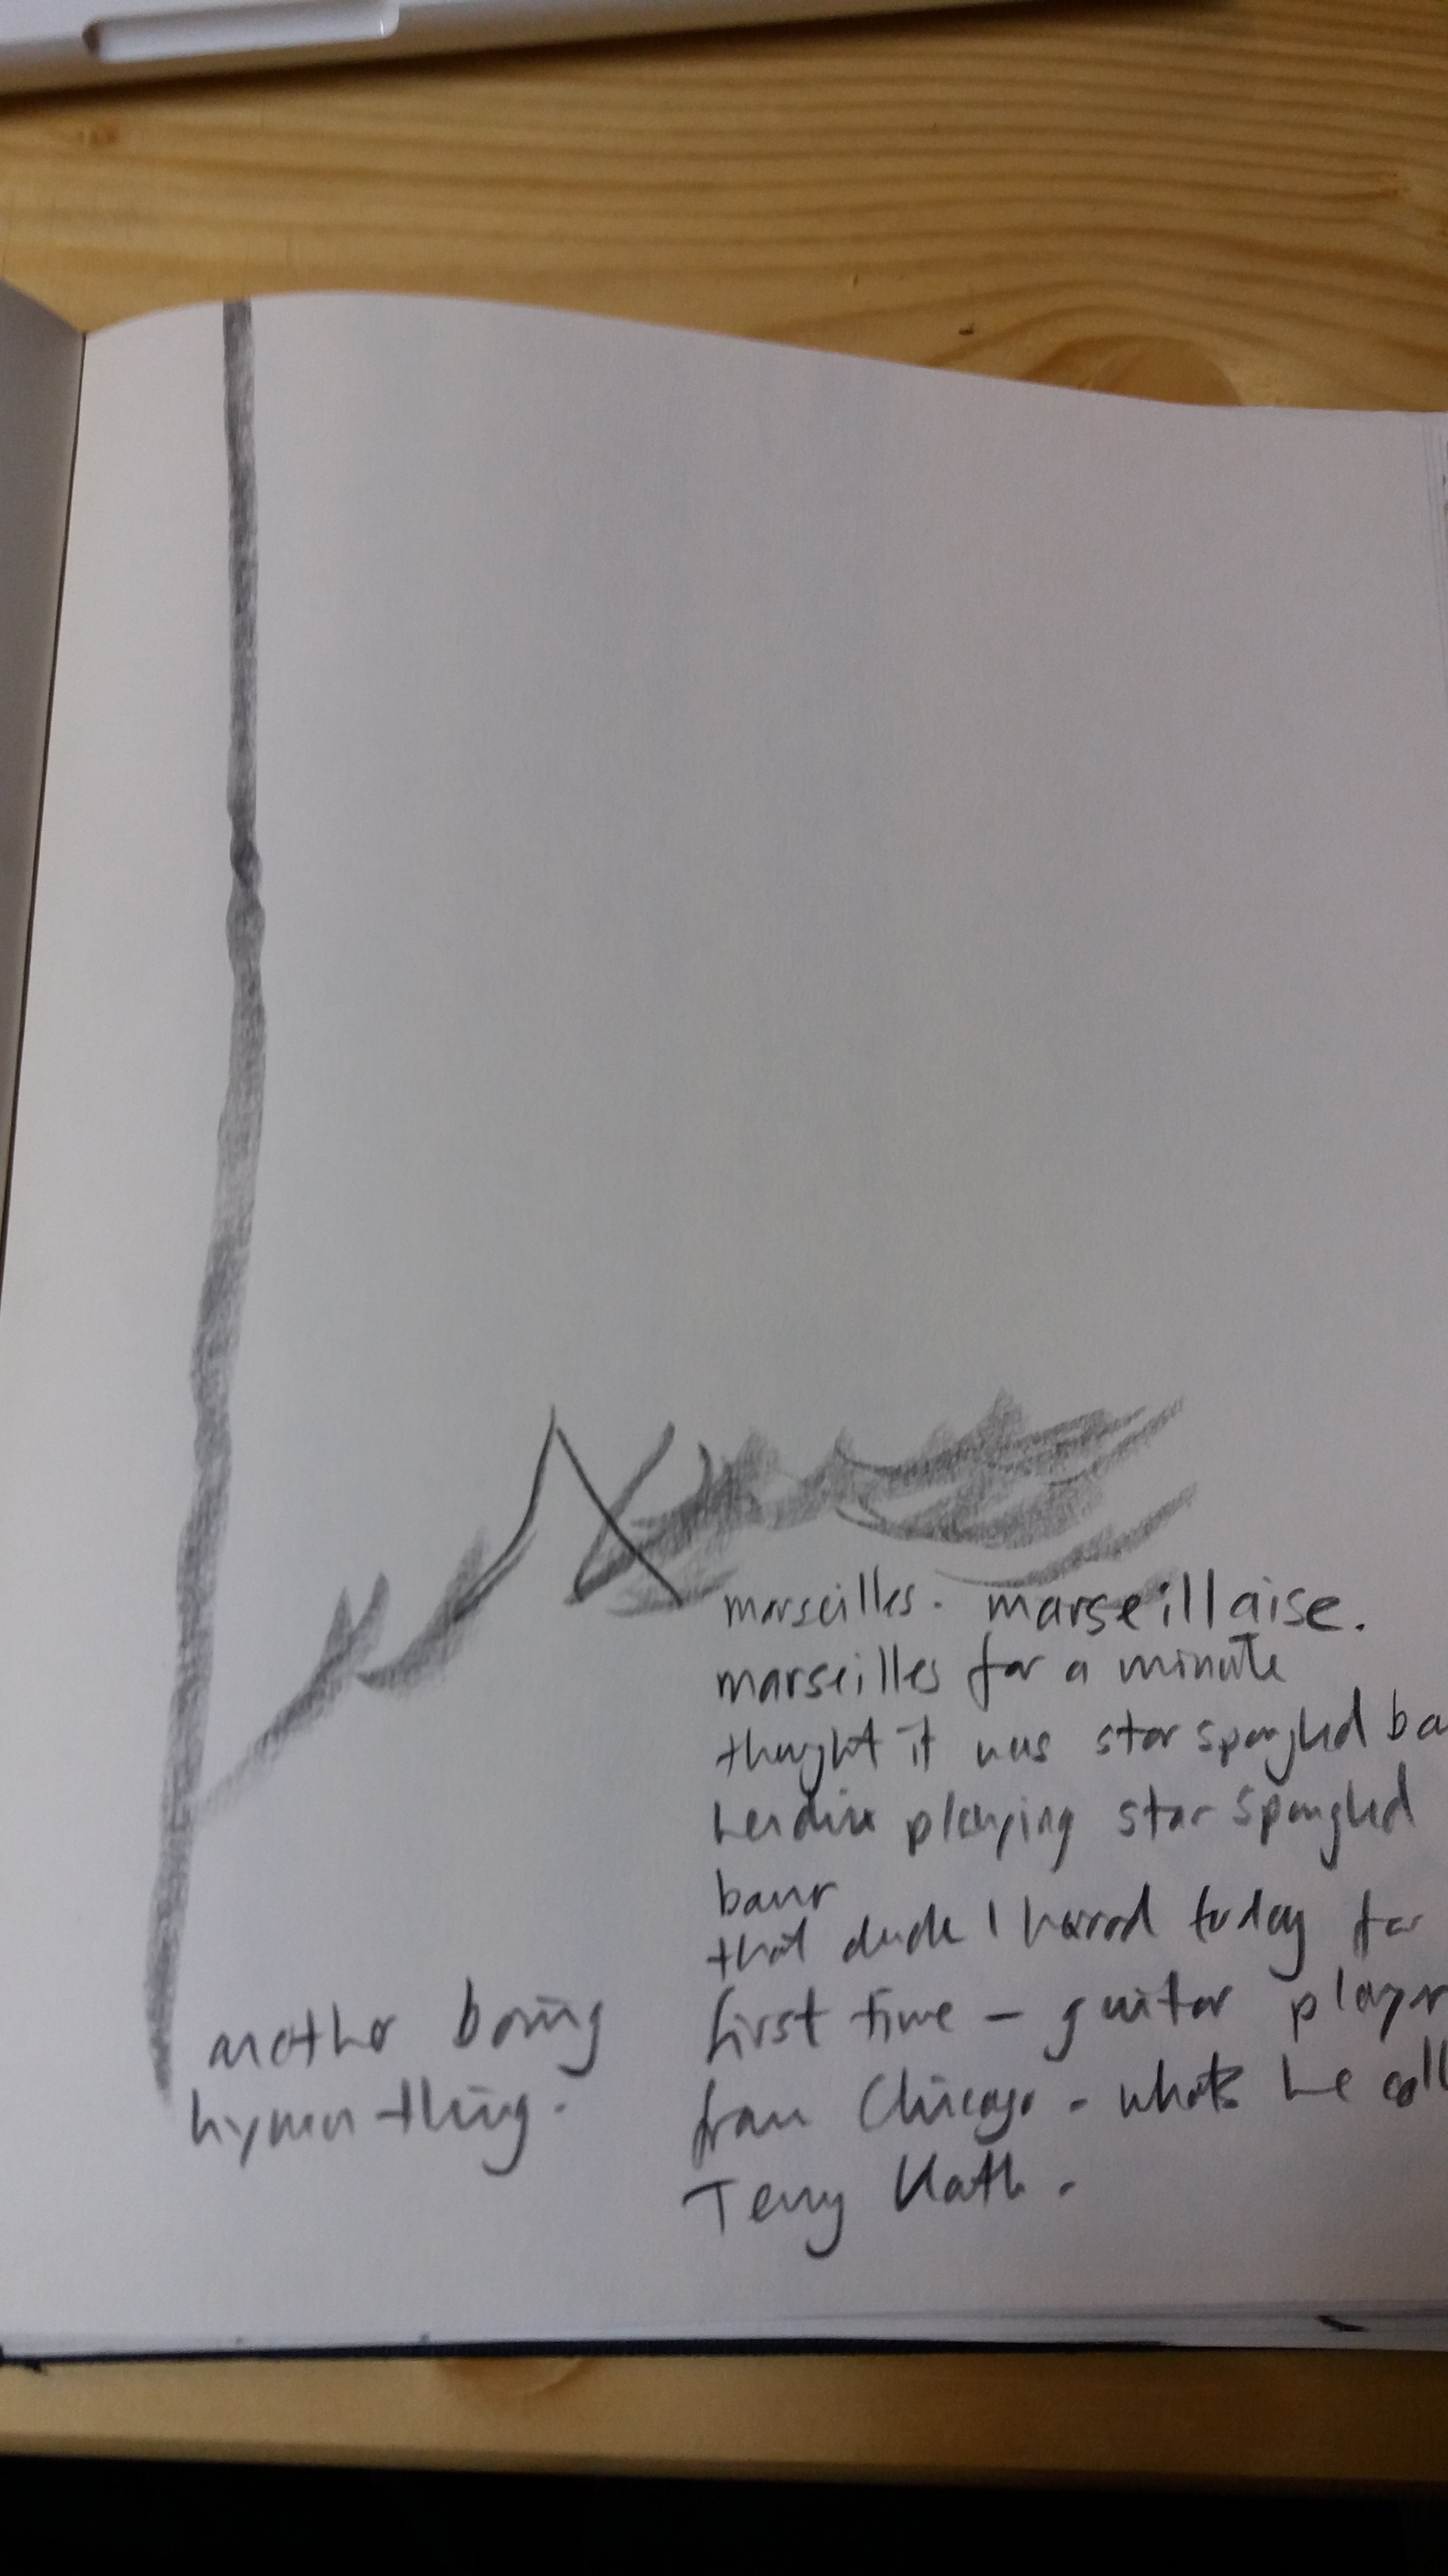 marseilles. marseillaise.
marseilles for a minute
thought it was star spangled ba
Hendrix playing star spangled
baner
that dude I heard today for
first time – guitar player
from Chicago – whats he call
Terry Kath.
another boring
hymn thing.